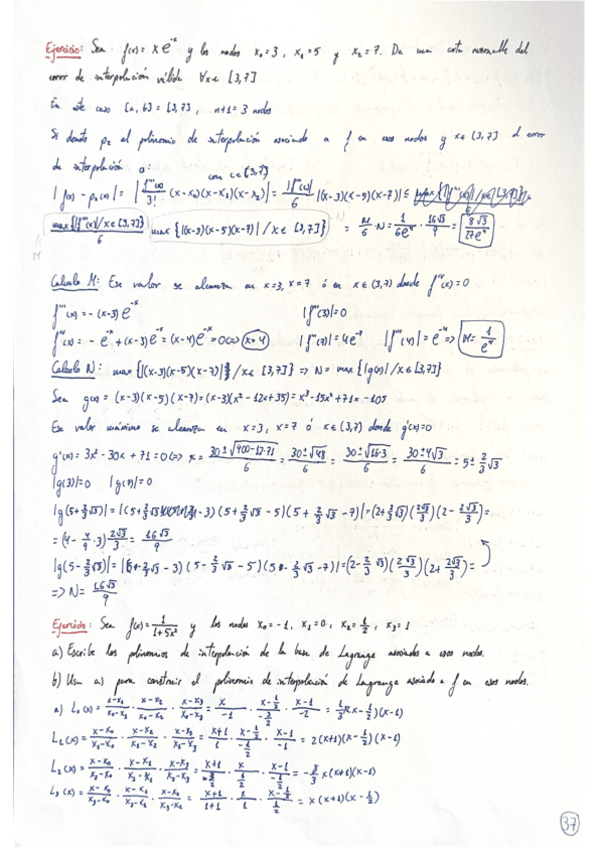 Ejercicio: Sea f(x) = x e^{-x} y los nodos x₀=3, x₁=5 y x₂=7. Da una cota razonable del
error de interpolación válida ∀x∈ [3,7]
En este caso [a,b] = [3,7], n+1=3 nodos
Si denoto p₂ al polinomio de interpolación asociado a f en esos nodos y x∈[3,7] el error
de interpolación a:
con c∈[3,7]
|f(x) - p₂(x)| = |f'''(c)/3! (x-x₀)(x-x₁)(x-x₂)| = |f'''(c)|/6 |(x-3)(x-5)(x-7)| ≤
max{|f'''(x)|/x∈[3,7]}/6 max{|(x-3)(x-5)(x-7)| / x∈[3,7]} = M/6 · N = 1/6e⁴ · 16√3/9 = 8√3/27e⁴
M
Calculo M: Ese valor se alcanza en x=3, x=7 ó en x∈(3,7) donde f''''(x)=0
f'''(x) = -(x-3)e^{-x} |f'''(3)|=0
f''''(x) = -e^{-x} + (x-3)e^{-x} = (x-4)e^{-x} = 0 <=> x=4 |f'''(7)| = 4e^{-7} |f'''(4)| = e^{-4} => M = 1/e⁴
Calculo N: max{|(x-3)(x-5)(x-7)| / x∈[3,7]} => N = max{|g(x)| / x∈[3,7]}
Sea g(x) = (x-3)(x-5)(x-7) = (x-3)(x²-12x+35) = x³-15x²+71x-105
Ese valor máximo se alcanza en x=3, x=7 ó x∈(3,7) donde g'(x)=0
g'(x) = 3x²-30x+71=0 => x = 30±√(900-12·71)/6 = 30±√48/6 = 30±√(16·3)/6 = 30±4√3/6 = 5±2/3√3
|g(3)|=0 |g(7)|=0
|g(5+2/3√3)| = |(5+2/3√3-3)(5+2/3√3-5)(5+2/3√3-7)| = (2+2/3√3)(2√3/3)(2-2√3/3) =
= (4-4/9·3)2√3/3 = 16√3/9
|g(5-2/3√3)| = |(5-2/3√3-3)(5-2/3√3-5)(5-2/3√3-7)| = (2-2/3√3)(2√3/3)(2+2√3/3) =
=> N = 16√3/9
Ejercicio: Sea f(x) = 1/1+5x² y los nodos x₀=-1, x₁=0, x₂=1/2, x₃=1
a) Escribe los polinomios de interpolación de la base de Lagrange asociados a esos nodos.
b) Usa a) para construir el polinomio de interpolación de Lagrange asociado a f en esos nodos.
a) L₀(x) = x-x₁/x₀-x₁ · x-x₂/x₀-x₂ · x-x₃/x₀-x₃ = x/-1 · x-1/2/-3/2 · x-1/-2 = -1/3 x(x-1/2)(x-1)
L₁(x) = x-x₀/x₁-x₀ · x-x₂/x₁-x₂ · x-x₃/x₁-x₃ = x+1/1 · x-1/2/-1/2 · x-1/-1 = 2(x+1)(x-1/2)(x-1)
L₂(x) = x-x₀/x₂-x₀ · x-x₁/x₂-x₁ · x-x₃/x₂-x₃ = x+1/3/2 · x/1/2 · x-1/-1/2 = -8/3 x(x+1)(x-1)
L₃(x) = x-x₀/x₃-x₀ · x-x₁/x₃-x₁ · x-x₂/x₃-x₂ = x+1/1+1 · x/1 · x-1/2/1/2 = x(x+1)(x-1/2)
37